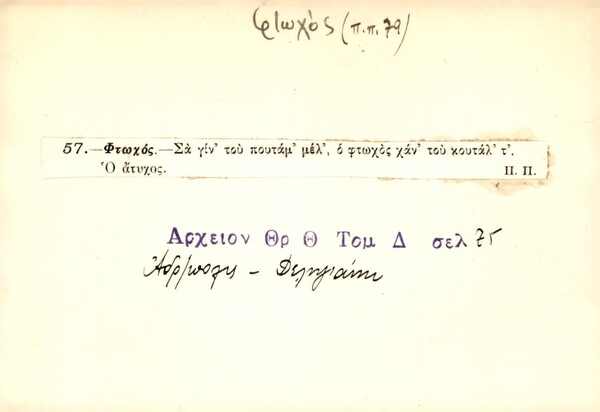 φτωχὸς (π.π. 79)
57.—Φτωχός.—Σὰ γίν' τοῦ πουτάμ' μέλ', ὁ φτωχὸς χάν' τοῦ κουτάλ' τ'.
Ὁ ἄτυχος. Π. Π.
Αρχειον Θρ Θ Τομ Δ σελ 75